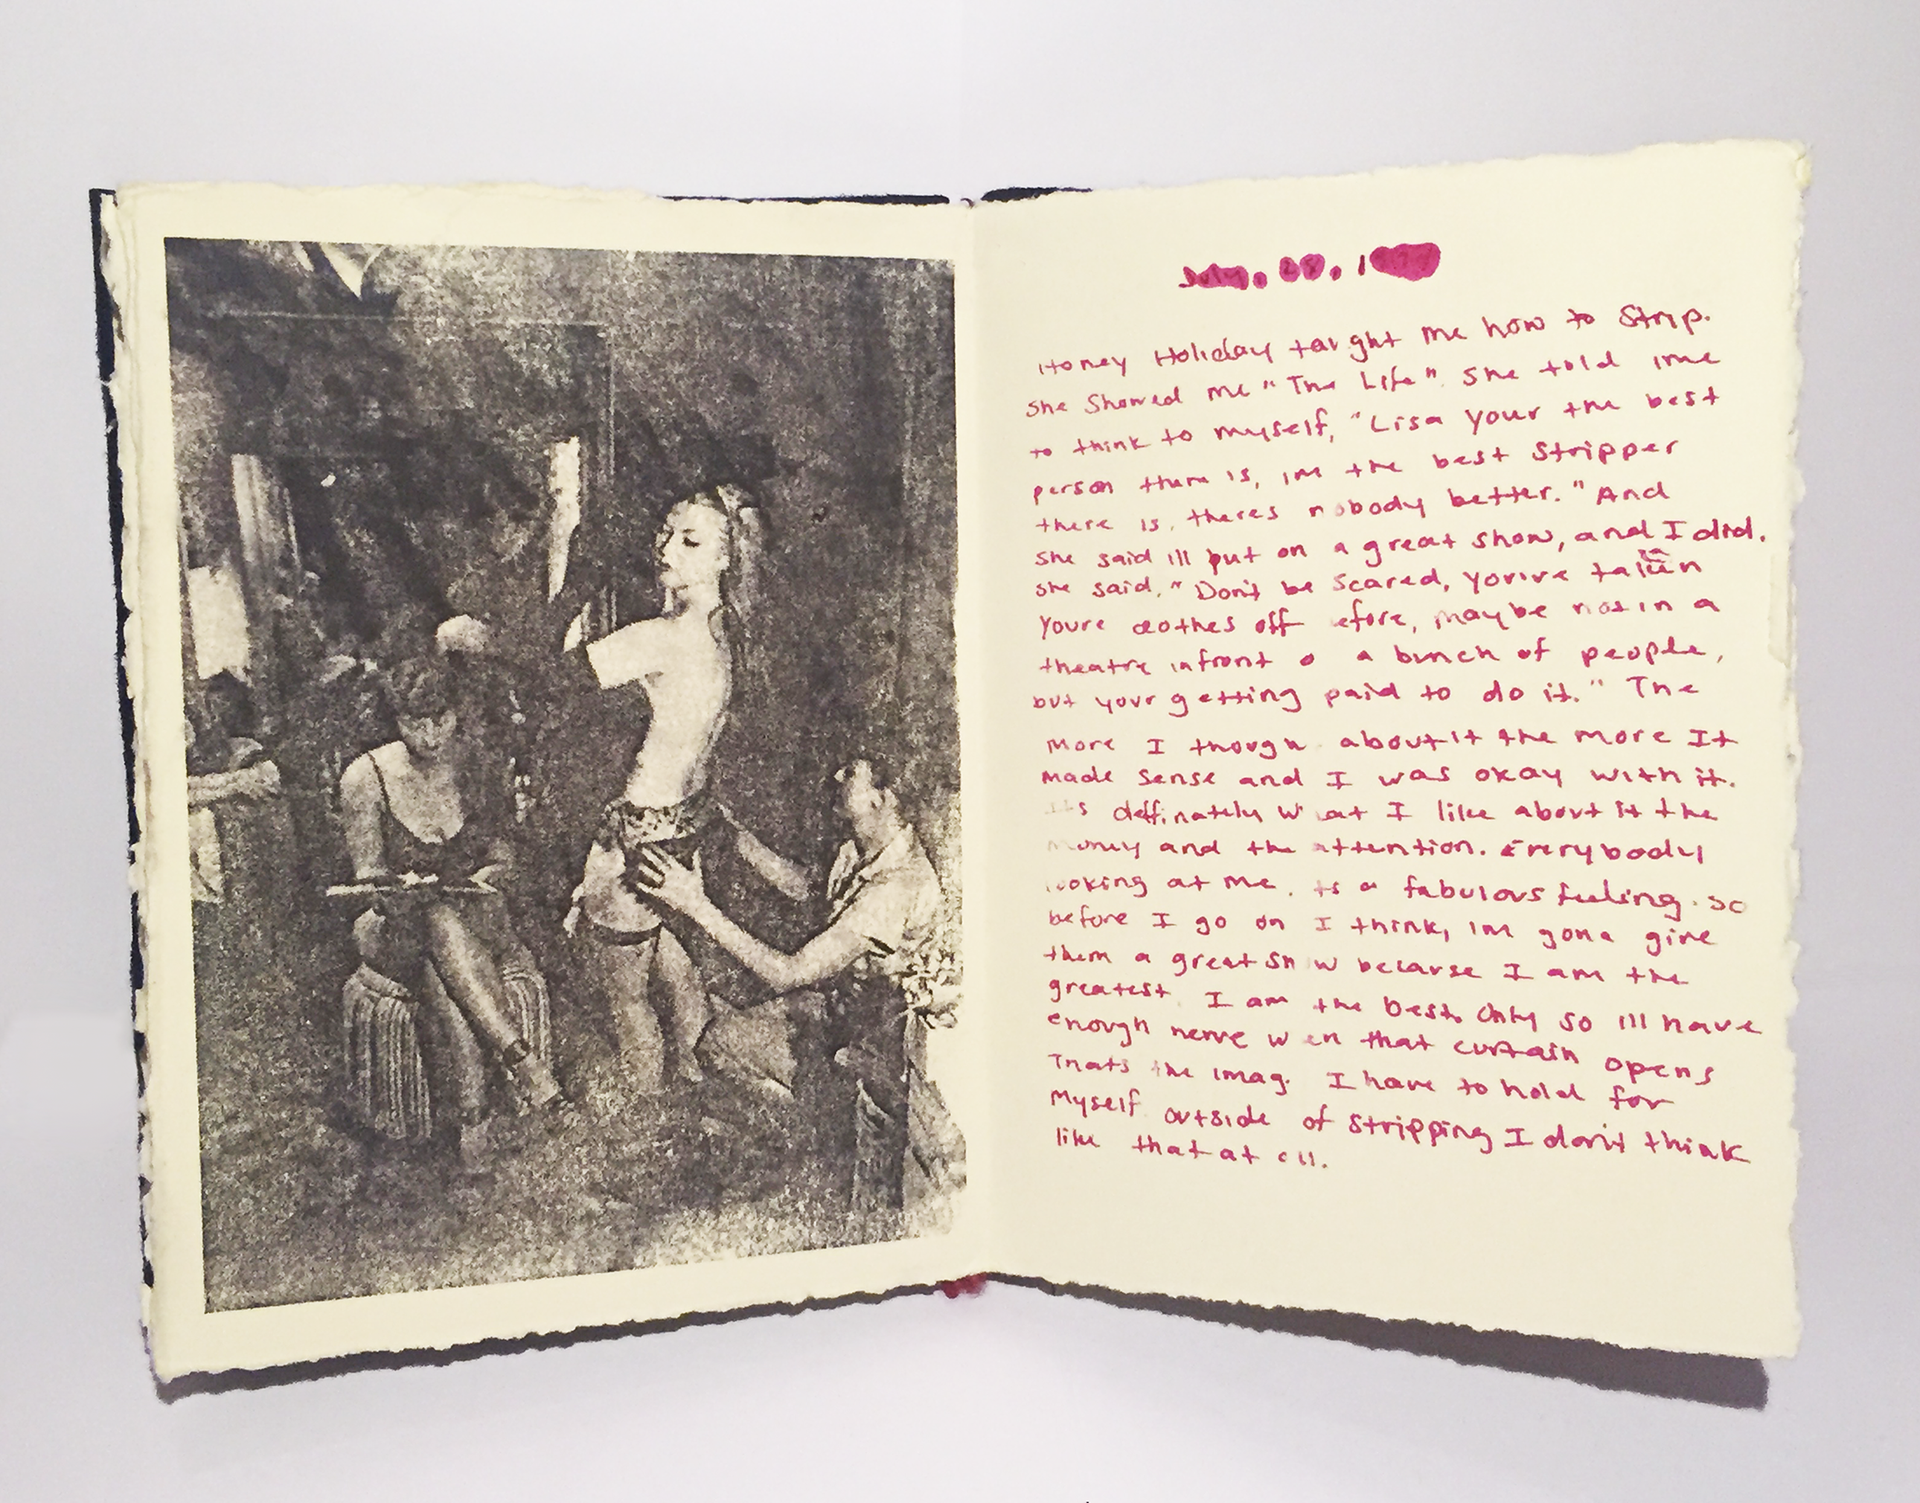 July. 28. 1
Honey Holiday taught me how to strip.
She Showed me "The Life". She told me
to think to myself, "Lisa your the best
person there is, im the best Stripper
there is, theres nobody better." And
she said ill put on a great show, and I did.
she said, "Don't be scared, youve taken
youre clothes off efore, maybe not in a
theatre infront o a bunch of people,
but your getting paid to do it." The
More I though about it the more It
made sense and I was okay with it.
deffinately w at I like about it the
money and the attention. Everybody
looking at me, ts a fabulous feeling. so
before I go on I think, im gona give
them a great sh w because I am the
greatest. I am the best. Only so ill have
enough nerve w en that curtain opens
Thats the imag. I have to hold for
Myself outside of stripping I don't think
like that at all.